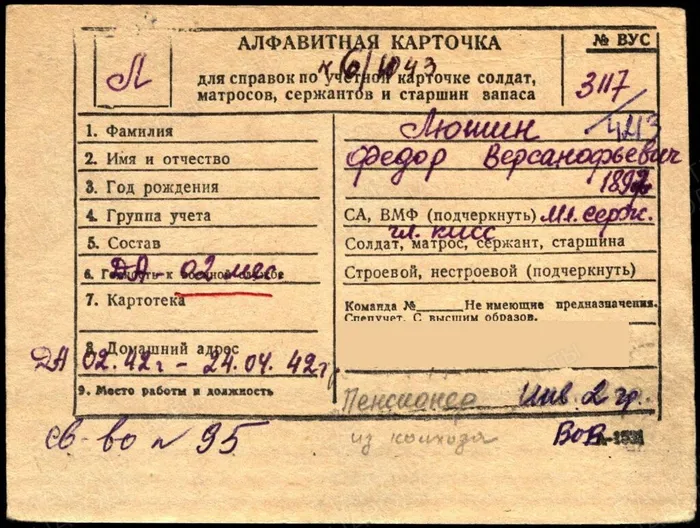 АЛФАВИТНАЯ КАРТОЧКА
№ ВУС
Л
для справок по учетной карточке солдат,
матросов, сержантов и старшин запаса
3117
/4213
1. Фамилия Люшин
2. Имя и отчество Федор Версанофьевич
3. Год рождения
4. Группа учета СА, ВМФ (подчеркнуть) Мл. серж.
5. Состав Солдат, матрос, сержант, старшина
6. Годность к военной службе Строевой, нестроевой (подчеркнуть)
ДА - 02 мес
7. Картотека Команда №______ Не имеющие предназначения.
Спецучет. С высшим образов.
8. Домашний адрес
ДА 02.42г - 24.04.42г
9. Место работы и должность Пенсионер Инв. 2 гр.
из колхода ВОВ
св-во № 95